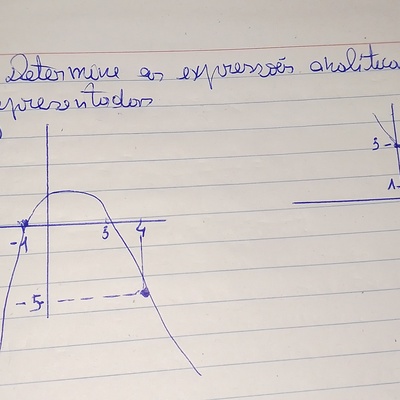 Determine as expressões analítica
epresentados
3
1
-1
3
4
-5